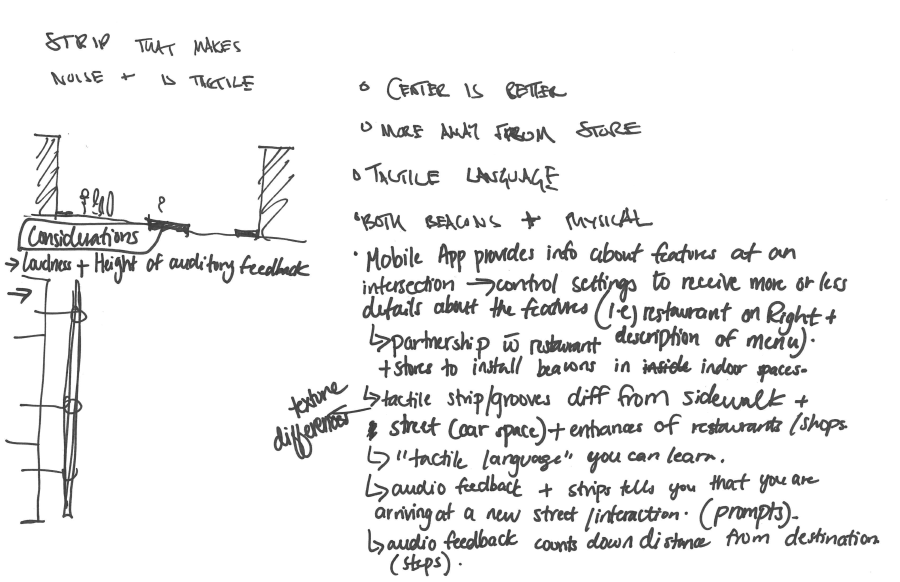 STRIP THAT MAKES
NOISE + IS TACTILE
Considerations
→ Loudness + Height of auditory feedback
• CENTER IS BETTER
• MORE AWAY FROM STORE
• TACTILE LANGUAGE
• BOTH BEACONS + PHYSICAL
• Mobile App provides info about features at an
intersection → control settings to receive more or less
details about the features (i.e) restaurant on Right +
↳ partnership w̄ restaurant description of menu).
+ stores to install beacons in inside indoor spaces.
texture
differences
↳ tactile strip/grooves diff from sidewalk +
street (car space) + entrances of restaurants/shops
↳ "tactile language" you can learn.
↳ audio feedback + strips tells you that you are
arriving at a new street/interaction. (prompts).
↳ audio feedback counts down distance from destination
(steps).